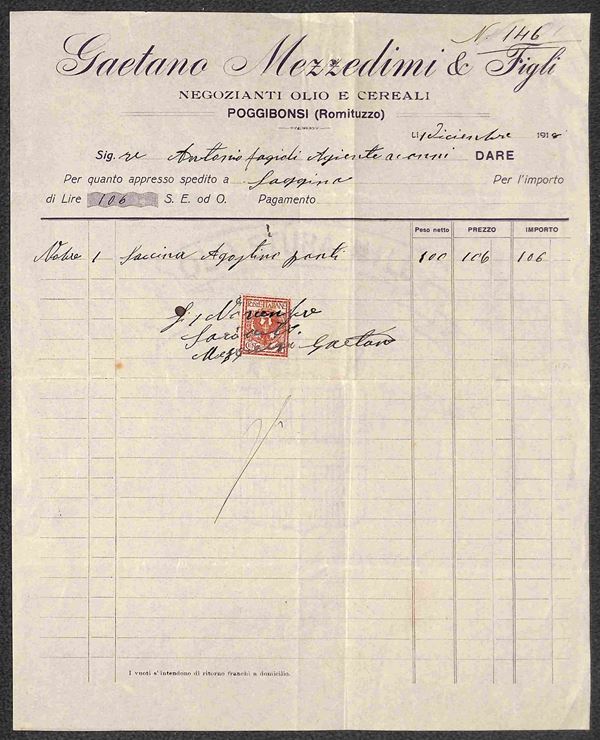 N 146
Gaetano Mezzedimi & Figli
NEGOZIANTI OLIO E CEREALI
POGGIBONSI (Romituzzo)
Li 1 Dicienbre 1918
Sig. re Antonio fagioli Agiente DARE
Per quanto appresso spedito a Saggina Per l'importo
di Lire 106 S. E. od O. Pagamento
Peso netto PREZZO IMPORTO
Nobre 1 Saccina Agostino ponti 100 106 106
1 Novenbre
Saldato
Mezzedimi Gaetano
I vuoti s'intendono di ritorno franchi a domicilio.